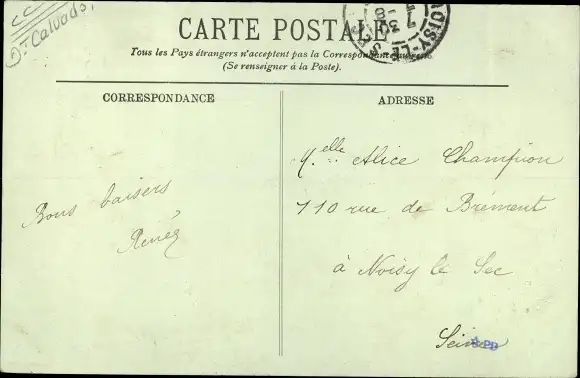 Dt Calvados
CARTE POSTALE
Tous les Pays étrangers n'acceptent pas la Correspondance au recto.
(Se renseigner à la Poste).
NOISY-LE-SEC
CORRESPONDANCE
ADRESSE
Bons baisers
Renée
Melle Alice Champion
110 rue de Brément
à Noisy le Sec
Seine